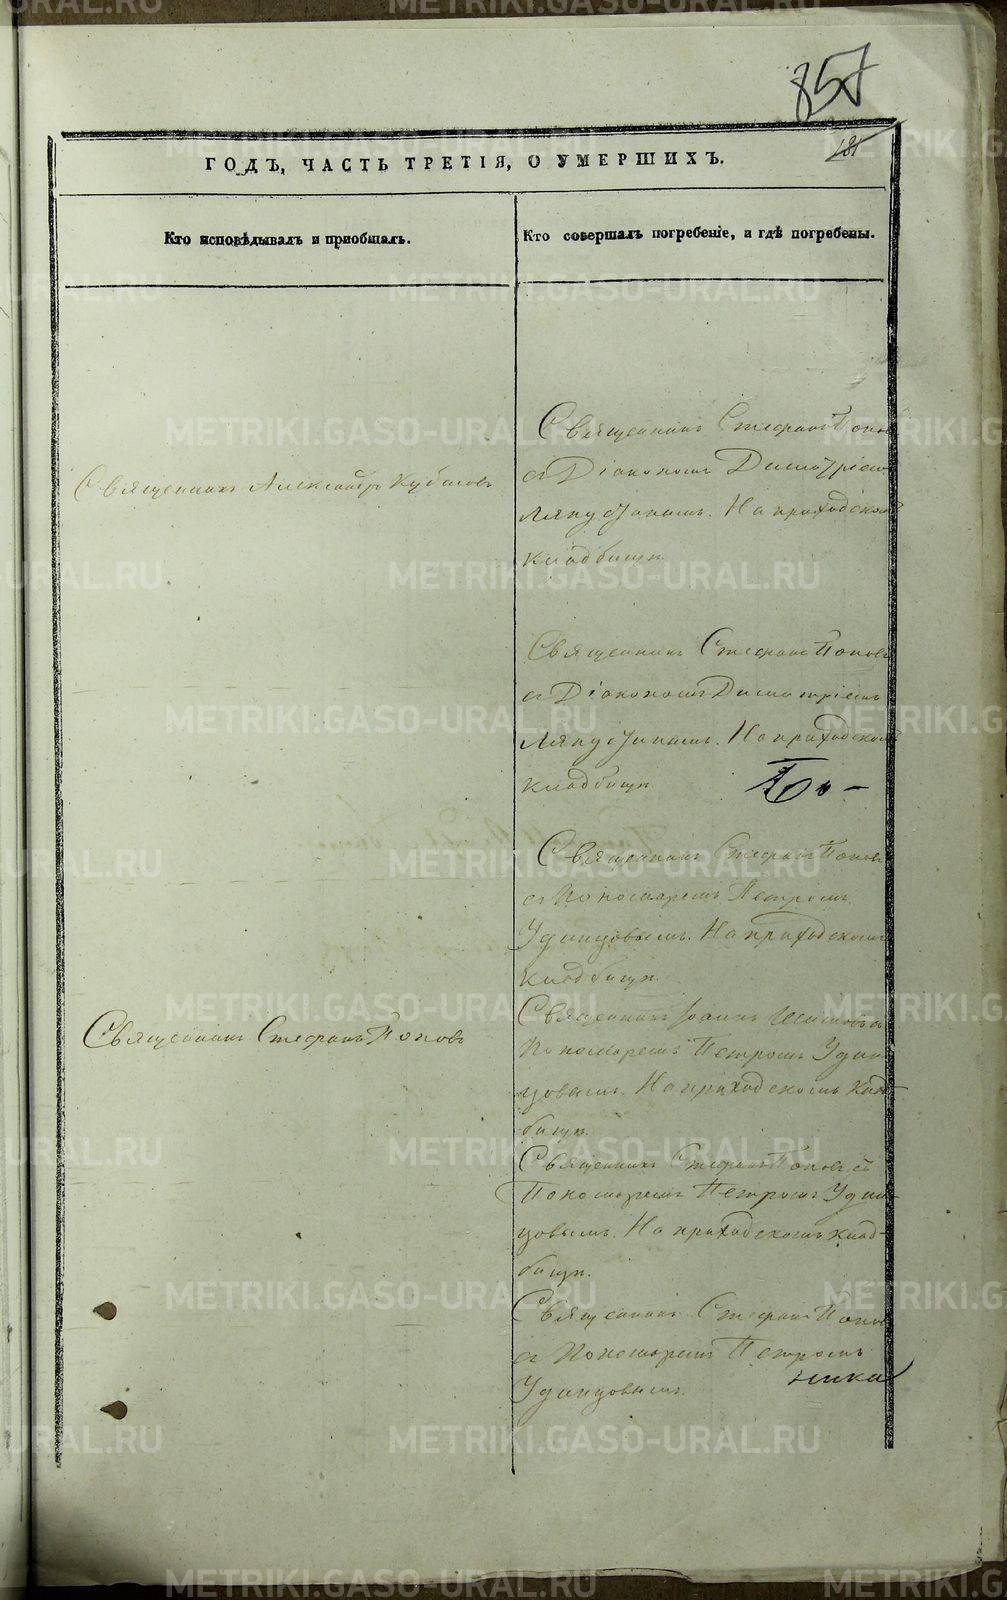 857
181
ГОДЪ, ЧАСТЬ ТРЕТІЯ, О УМЕРШИХЪ.
Кто исповѣдывалъ и приобщалъ.
Кто совершалъ погребеніе, и гдѣ погребены.
Священникъ Александръ Кубасовъ
Священникъ Стефанъ Попов
съ Діакономъ Димитріемъ
Ляпустинымъ. На приходскомъ
кладбищѣ.
Священникъ Стефанъ Поповъ
съ Діакономъ Димитріемъ
Ляпустинымъ. На приходскомъ
кладбищѣ.
Священникъ Стефанъ Поповъ
съ Пономаремъ Петромъ
Удинцовымъ. На приходскомъ
кладбищѣ.
Священникъ Стефанъ Поповъ
Священникъ Іоаннъ Шишовъ съ
Пономаремъ Петромъ Удин-
цовымъ. На приходскомъ клад-
бищѣ.
Священникъ Стефанъ Поповъ съ
Пономаремъ Петромъ Удин-
цовымъ. На приходскомъ клад-
бищѣ.
Священникъ Стефанъ Попов
съ Пономаремъ Петромъ
Удинцовымъ.
ника
METRIKI.GASO-URAL.RU